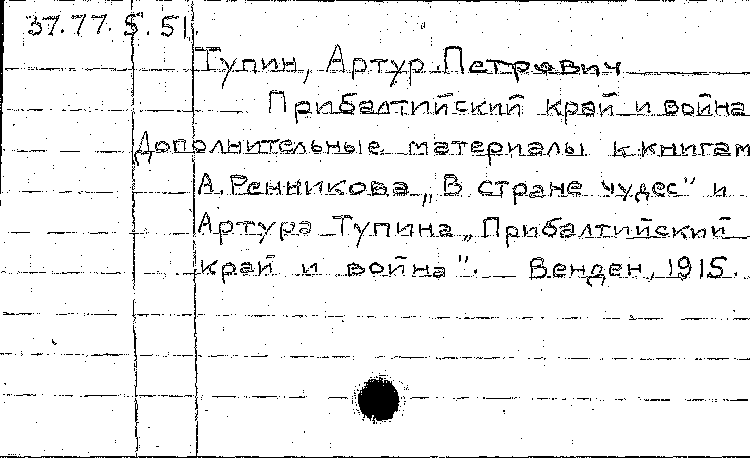 37.77.5.51.
Тупин, Артур Петрович
Прибалтийский край и война
Дополнительные материалы к книгам
А. Ренникова „В стране чудес" и
Артура Тупина „Прибалтийский
край и война". Венден, 1915.